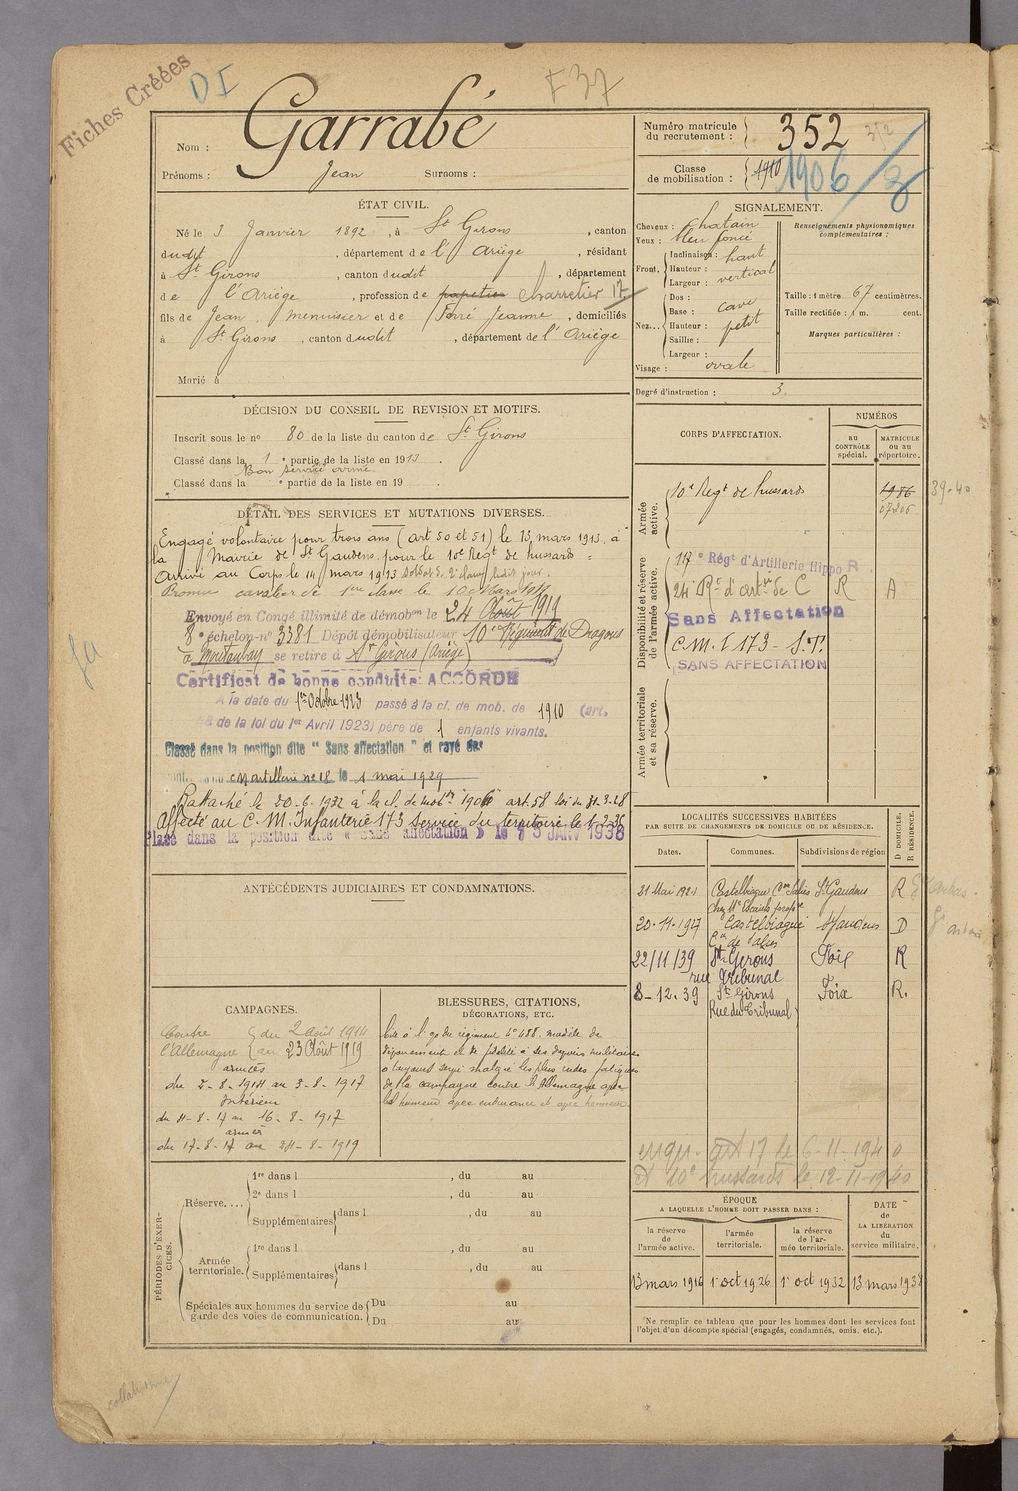 Fiches Créées
DI
F 37
Nom : Garrabé
Prénoms : Jean Surnoms :
Numéro matricule du recrutement : 352
352
Classe de mobilisation : 1910 1906/3
ÉTAT CIVIL.
Né le 3 Janvier 1892, à St Girons, canton
dudit, département de l'Ariège, résidant
à St Girons, canton dudit, département
de l'Ariège, profession de papetier Charretier
fils de Jean, menuisier et de Ferré Jeanne, domiciliés
à St Girons, canton dudit, département de l'Ariège
Marié à
SIGNALEMENT.
Cheveux : chatain
Yeux : bleu foncé
Front. Inclinaison : haut
Hauteur : vertical
Largeur :
Nez... Dos : cave
Base :
Hauteur : petit
Saillie :
Largeur :
Visage : ovale
Renseignements physionomiques complémentaires :
Taille : 1 mètre 67 centimètres.
Taille rectifiée : 1 m. cent.
Marques particulières :
Degré d'instruction : 3.
DÉCISION DU CONSEIL DE REVISION ET MOTIFS.
Inscrit sous le no 80 de la liste du canton de St Girons
Classé dans la 1e partie de la liste en 1913.
Bon service armé
Classé dans la e partie de la liste en 19 .
DÉTAIL DES SERVICES ET MUTATIONS DIVERSES.
Engagé volontaire pour trois ans (art 50 et 51) le 13 mars 1913 à
la Mairie de St Gaudens pour le 10e Régt de hussards =
Arrivé au Corps le 14 mars 1913 soldat de 2e classe ledit jour.
cavalier de 1ere classe le 10 Mars
Envoyé en Congé illimité de démobon le 24 Août 1919
8e échelon no 3381 Dépôt démobilisateur 10e Régiment de Dragons
à Montauban se retire à St Girons (Ariège)
Certificat de bonne conduite ACCORDÉ
A la date du 1er Octobre 1923 passé à la cl. de mob. de 1910 (art.
de la loi du 1er Avril 1923) père de 1 enfants vivants.
Classé dans la position dite " Sans affectation " et rayé des
d'Artillerie no 18 le 1 mai 1929
Rattaché le 20-6-1932 à la cl. de mobon 1906 art. 58 loi du 31-3-28
Affecté au C.M. Infanterie 173 service du territoire le 1-2-36
Placé dans la position dite « Sans affectation » le 15 JANV 1938
CORPS D'AFFECTATION.
NUMÉROS
au CONTRÔLE spécial.
MATRICULE ou au répertoire.
Armée active.
10e Régt de hussards 1986
07206
39-40
Disponibilité et réserve de l'armée active.
117e Régt d'Artillerie Hippo R
24 Rt d'Artie de C R A
Sans Affectation
C.M.I 173 - S.T.
SANS AFFECTATION
Armée territoriale et sa réserve.
LOCALITÉS SUCCESSIVES HABITÉES
PAR SUITE DE CHANGEMENTS DE DOMICILE OU DE RÉSIDENCE.
Dates. Communes. Subdivisions de région
D DOMICILE. R RÉSIDENCE.
21 Mai 1921 Castelbiague Con Salies St Gaudens R
20-11-1927 Castelbiague Con de Salies St Gaudens D
22/11/39 St-Girons rue Tribunal Foix R
8-12-39 St Girons Rue du Tribunal Foix R.
ANTÉCÉDENTS JUDICIAIRES ET CONDAMNATIONS.
CAMPAGNES.
Contre l'Allemagne du 2 août 1914
au 23 Août 1919
armées
du 2-8-1914 au 3-8-1917
Intérieur
du 4-8-17 au 16-8-1917
armées
du 17-8-17 au 24-8-1919
BLESSURES, CITATIONS, DÉCORATIONS, ETC.
Cité à l'o. du régiment no 488. modèle de
dévouement et de fidélité à ses devoirs militaires
a toujours servi malgré les plus rudes fatigues
de la campagne contre l'Allemagne avec
bel humeur avec endurance et avec honneur
art 17 le 6-11-1940
10e hussards le 12-11-1940
PÉRIODES D'EXERCICES.
Réserve.... 1re dans l , du au
2e dans l , du au
Supplémentaires dans l , du au
Armée territoriale. 1re dans l , du au
Supplémentaires dans l , du au
Spéciales aux hommes du service de garde des voies de communication. Du au
Du au
ÉPOQUE
A LAQUELLE L'HOMME DOIT PASSER DANS :
la réserve de l'armée active.
l'armée territoriale.
la réserve de l'armée territoriale.
DATE de LA LIBÉRATION du service militaire.
13 mars 1916 1er oct 1926 1er oct 1932 13 mars 1938
Ne remplir ce tableau que pour les hommes dont les services font l'objet d'un décompte spécial (engagés, condamnés, omis, etc.).
collationné